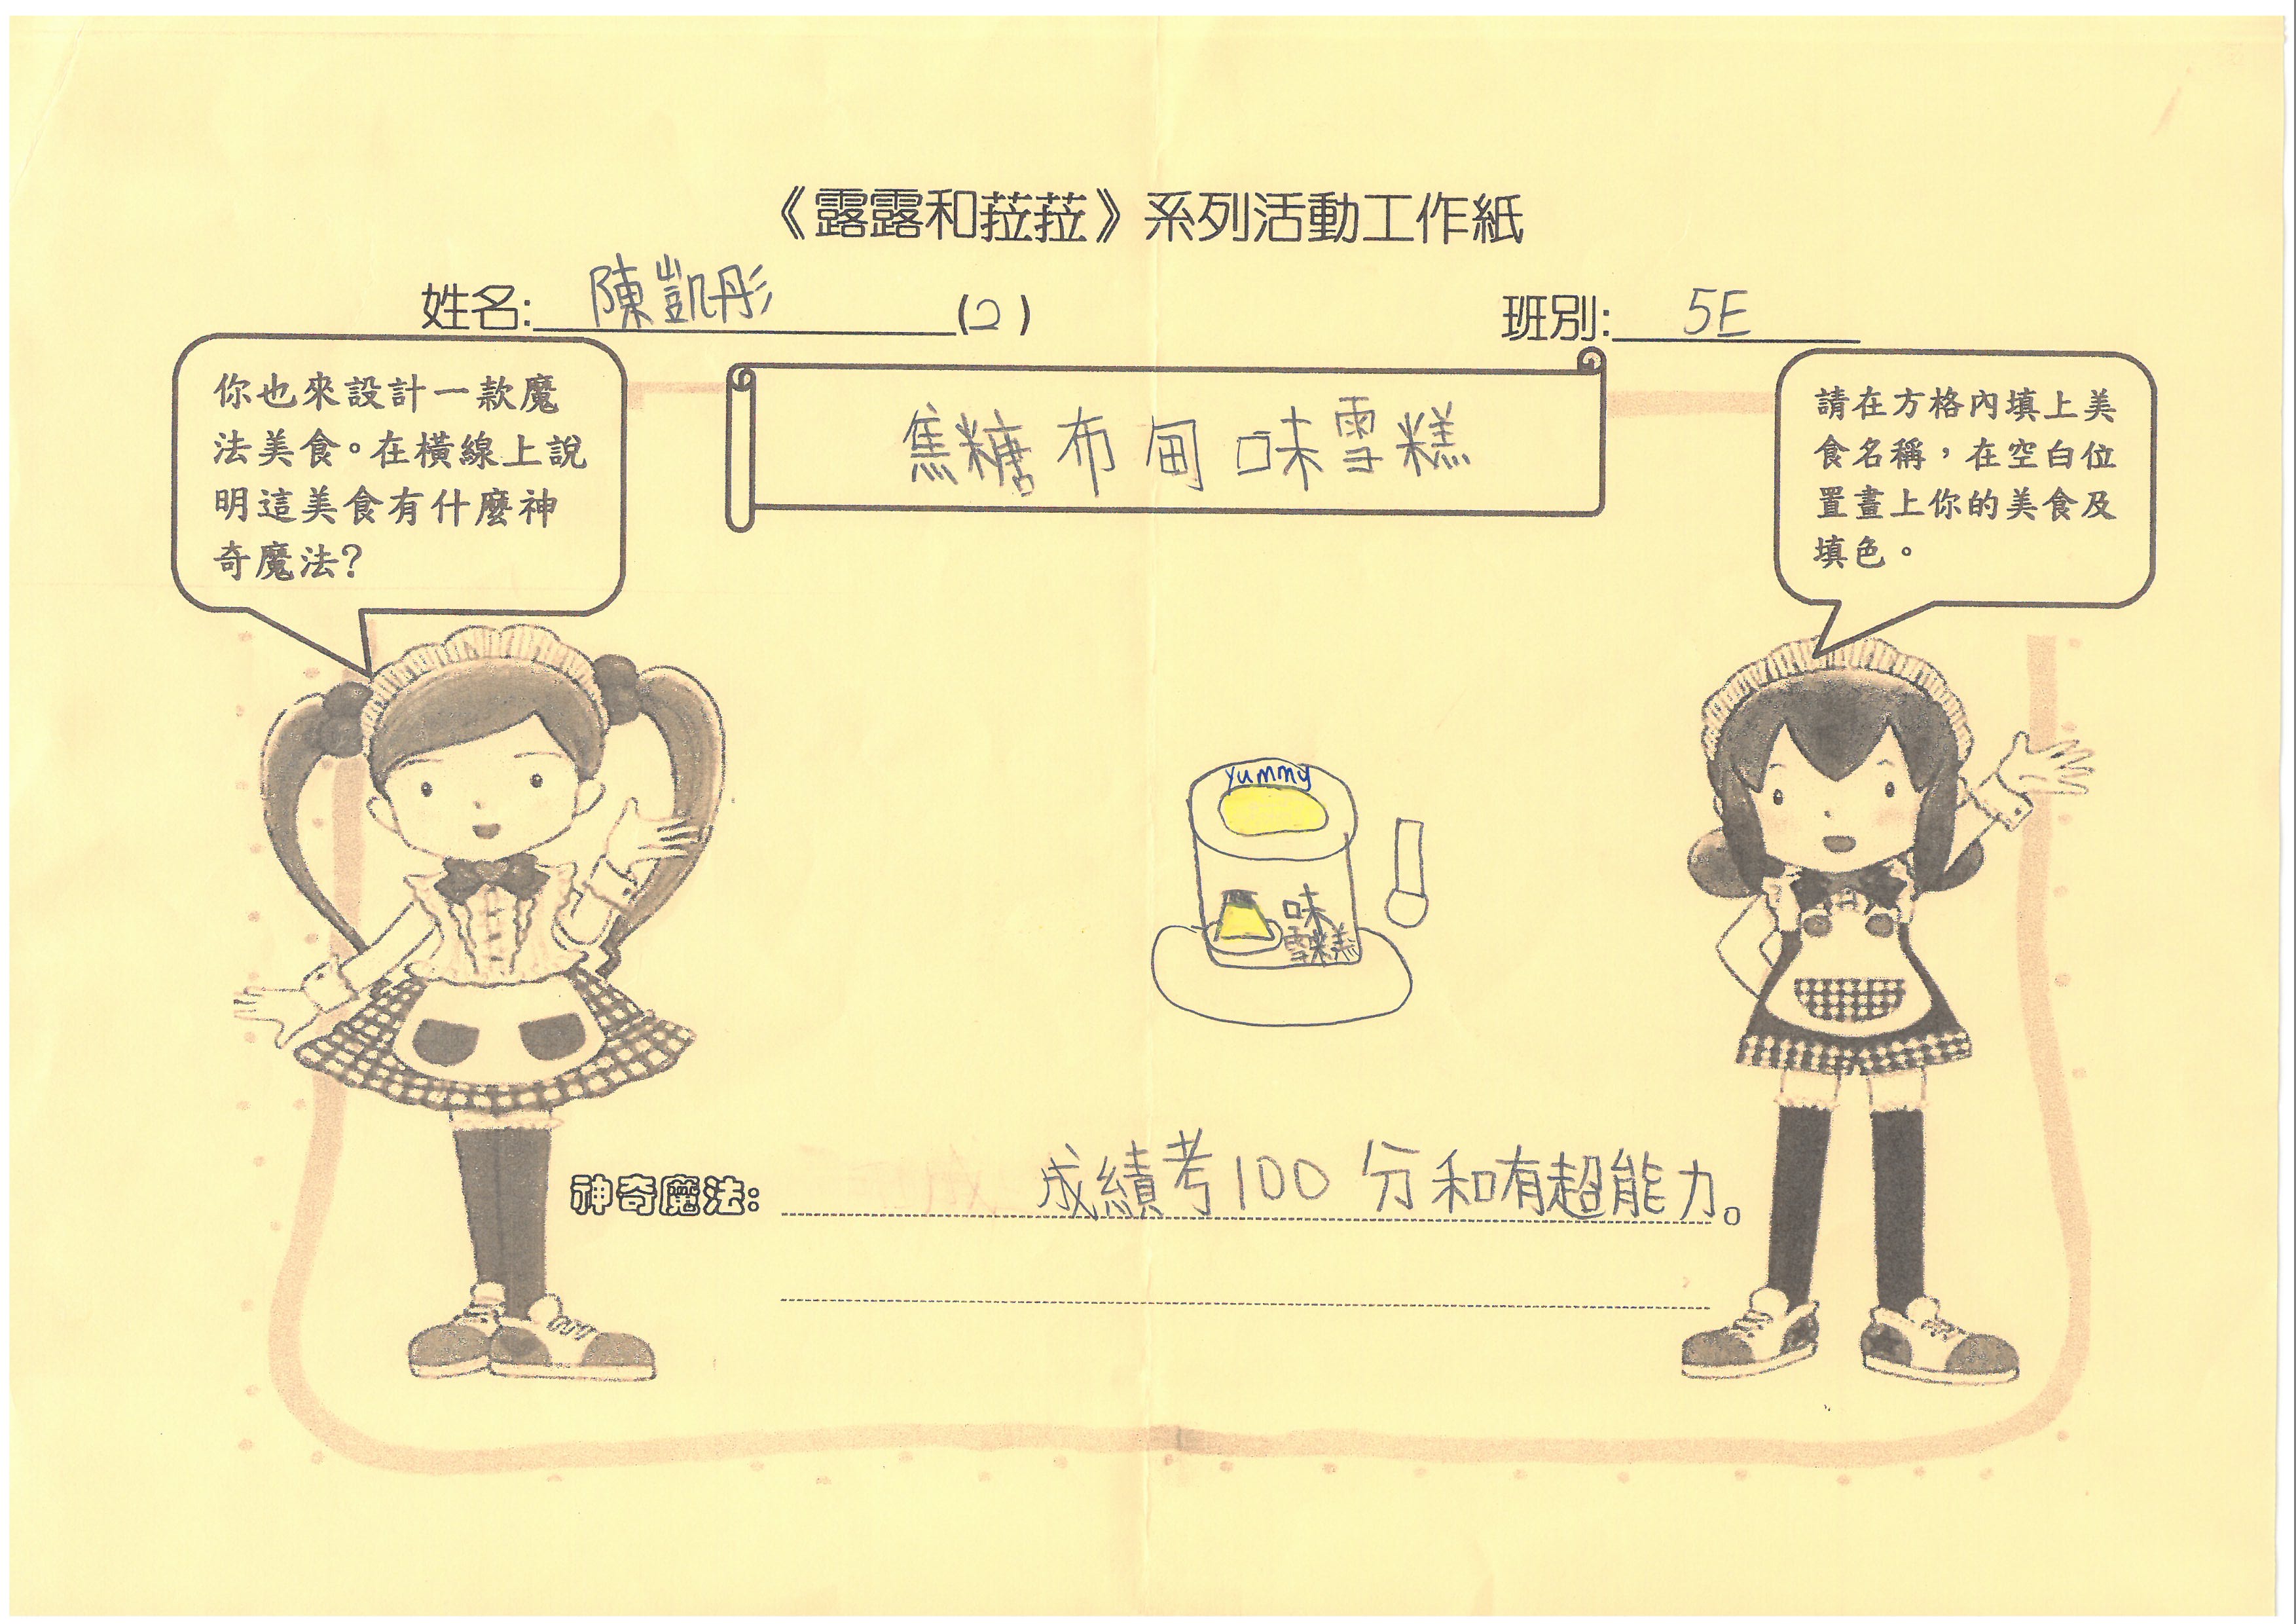 《露露和菈菈》系列活動工作紙
姓名: 陳凱彤 (2) 班別: 5E
你也來設計一款魔
法美食。在橫線上說
明這美食有什麼神
奇魔法?
焦糖布甸味雪糕
請在方格內填上美
食名稱，在空白位
置畫上你的美食及
填色。
yummy
味
雪糕
神奇魔法: 成績考100分和有超能力。